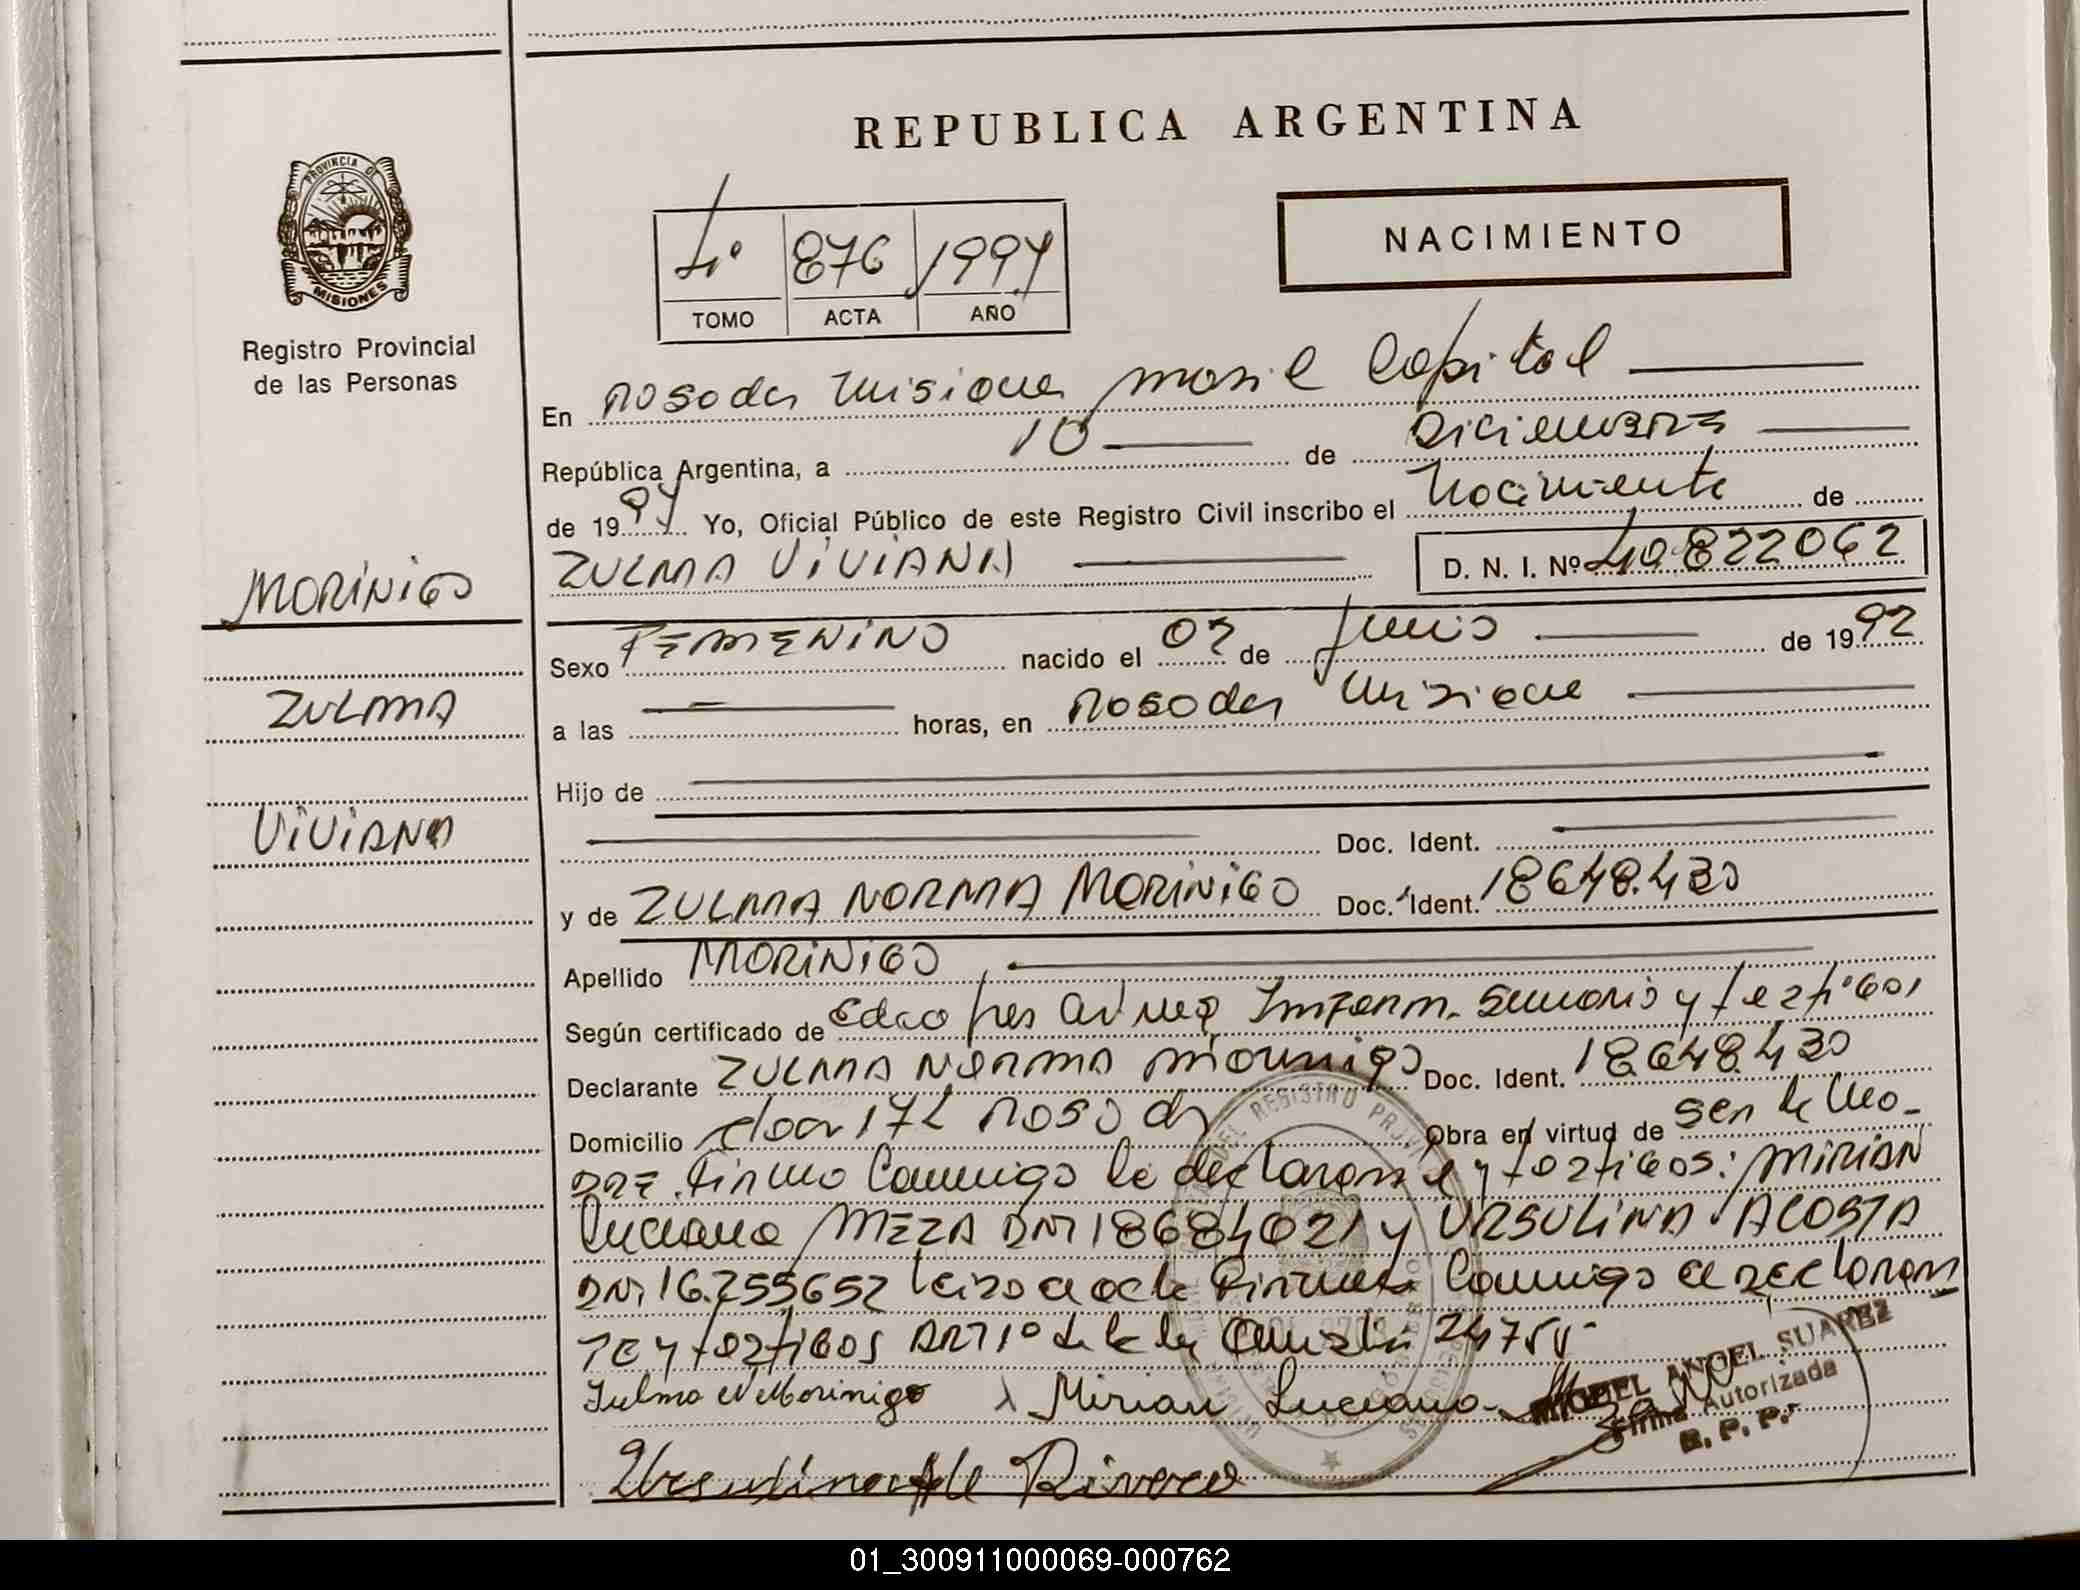 REPUBLICA ARGENTINA
PROVINCIA DE
MISIONES
Registro Provincial
de las Personas
4º 876 1994
TOMO ACTA AÑO
NACIMIENTO
En Posadas Misiones movil Capital
República Argentina, a 10 de Diciembre
de 1994 Yo, Oficial Público de este Registro Civil inscribo el Nacimiento de
MORINIGO
ZULMA VIVIANA D. N. I. Nº 40.822062
Sexo FEMENINO nacido el 07 de Junio de 1992
ZULMA
a las horas, en Posadas Misiones
Hijo de
VIVIANA
Doc. Ident.
y de ZULMA NORMA MORINIGO Doc. Ident. 18648.430
Apellido MORINIGO
Según certificado de Edad Inform. Sumaria y testigos
Declarante ZULMA NORMA Morinigo Doc. Ident. 18.648.430
Domicilio 172 Posadas Obra en virtud de ser la Ma-
DRE. Firman Conmigo la declarante y testigos: MIRIAN
Luciana MEZA DNI 18684021 y URSULINA ACOSTA
DNI 16.255652 Firman Conmigo el declaran
TE y testigos ART 1º de la ley
Zulma N Morinigo Mirian Luciana
MIGUEL ANGEL SUAREZ
Firma Autorizada
R. P. P.
Ursulina A de Rivero
01_300911000069-000762